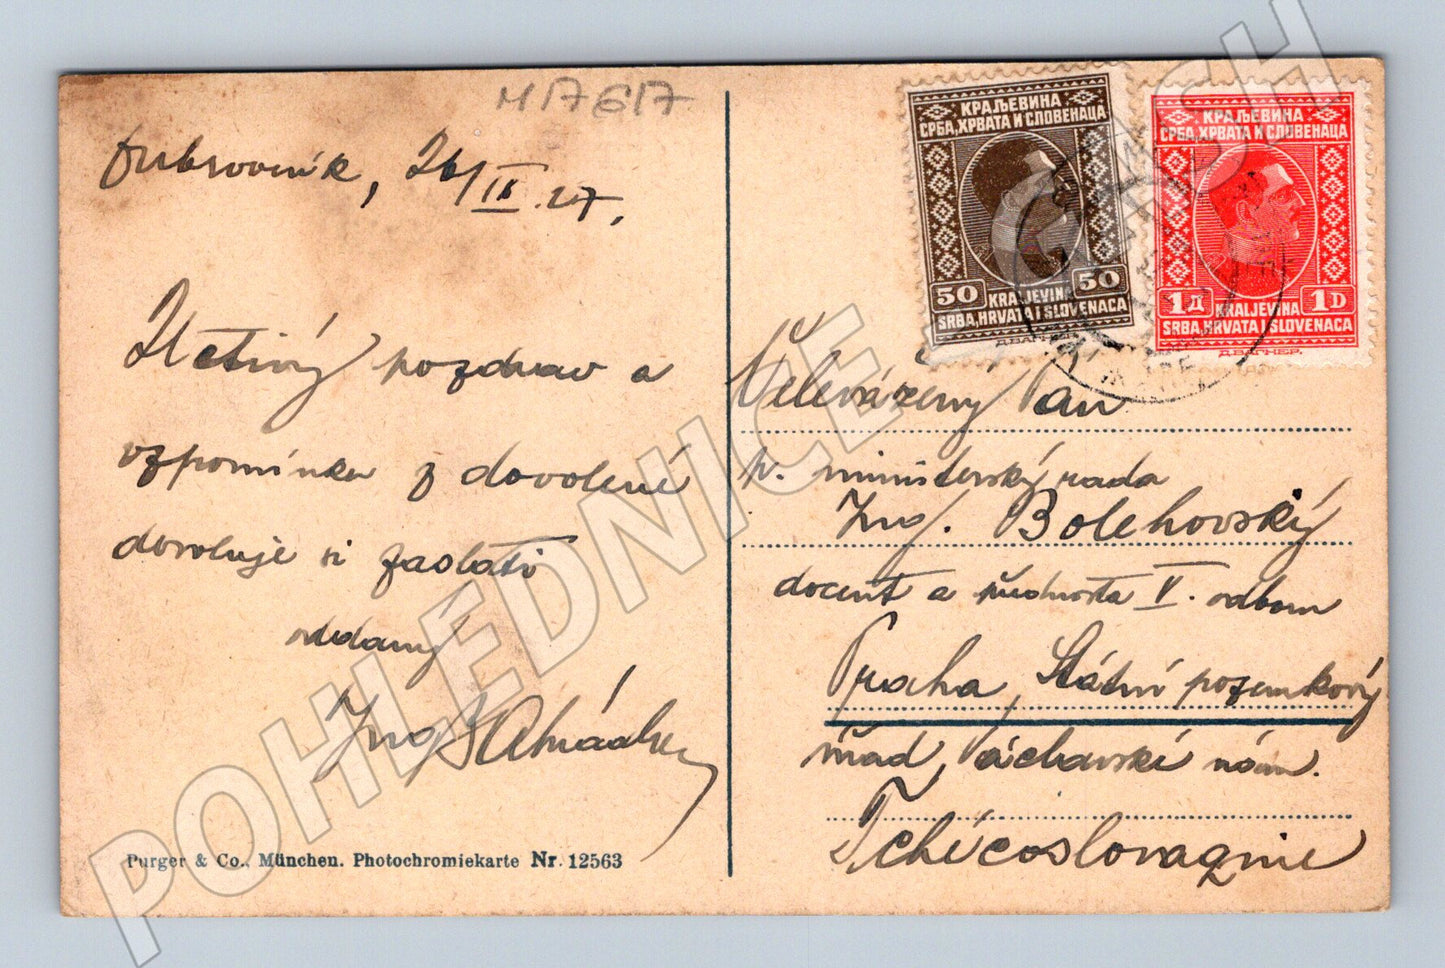 M17617
Dubrovnik, 26/IX.27.
Uctivý pozdrav a
vzpomínku z dovolené
dovoluje si zaslati
oddaný
Ing.
Purger & Co., München. Photochromiekarte Nr. 12563
КРАЉЕВИНА
СРБА, ХРВАТА И СЛОВЕНАЦА
50 50
KRALJEVINA
SRBA, HRVATA I SLOVENACA
КРАЉЕВИНА
СРБА, ХРВАТА И СЛОВЕНАЦА
1Д 1D
KRALJEVINA
SRBA, HRVATA I SLOVENACA
ДВАГНЕР.
Velevážený Pan
p. ministerský rada
Ing. Bolehovský
docent a přednosta V. odboru
Praha, Státní pozemkový
úřad, nám.
Tchécoslovaquie
POHLEDNICE